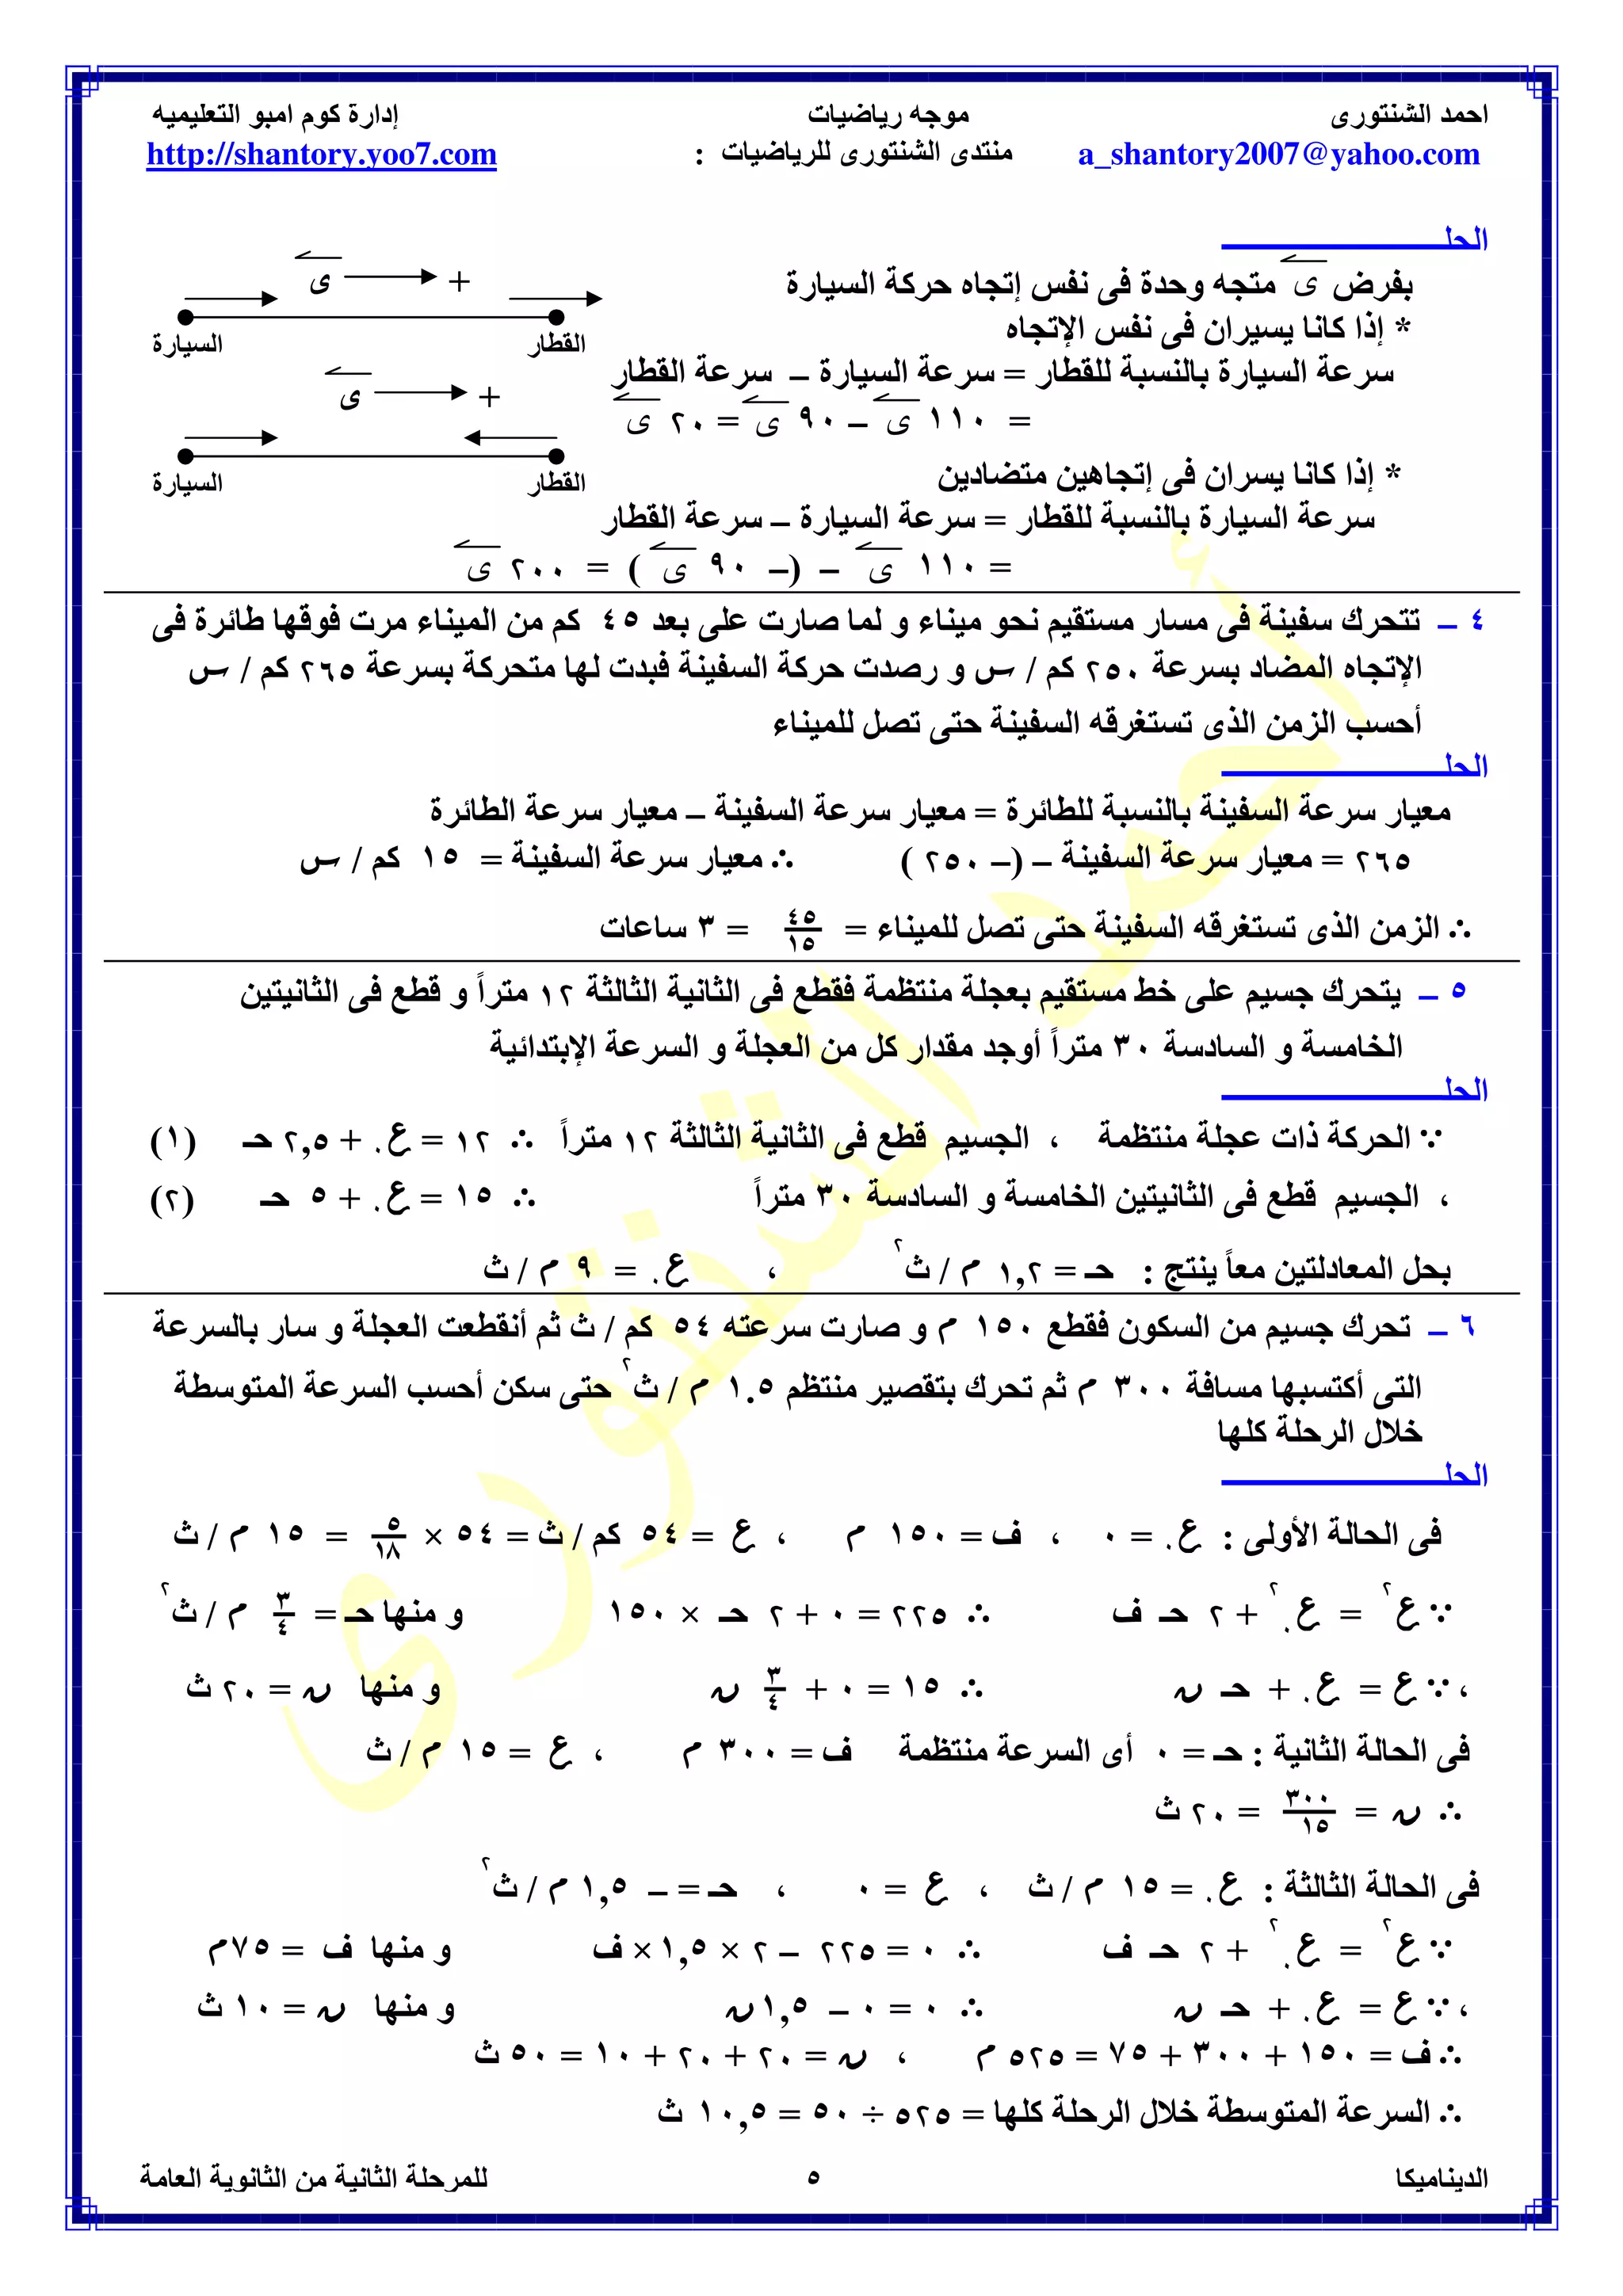 احمد الشنتورى موجه رياضيات إدارة كوم امبو التعليميه
a_shantory2007@yahoo.com منتدى الشنتورى للرياضيات : http://shantory.yoo7.com
الحل
بفرض ى متجه وحدة فى نفس إتجاه حركة السيارة
ى +
* إذا كانا يسيران فى نفس الإتجاه
القطار السيارة
سرعة السيارة بالنسبة للقطار = سرعة السيارة – سرعة القطار
ى +
= ١١٠ ى – ٩٠ ى = ٢٠ ى
* إذا كانا يسران فى إتجاهين متضادين
القطار السيارة
سرعة السيارة بالنسبة للقطار = سرعة السيارة – سرعة القطار
= ١١٠ ى – (– ٩٠ ى ) = ٢٠٠ ى
٤ – تتحرك سفينة فى مسار مستقيم نحو ميناء و لما صارت على بعد ٤٥ كم من الميناء مرت فوقها طائرة فى
الإتجاه المضاد بسرعة ٢٥٠ كم / س و رصدت حركة السفينة فبدت لها متحركة بسرعة ٢٦٥ كم / س
أحسب الزمن الذى تستغرقه السفينة حتى تصل للميناء
الحل
معيار سرعة السفينة بالنسبة للطائرة = معيار سرعة السفينة – معيار سرعة الطائرة
٢٦٥ = معيار سرعة السفينة – (– ٢٥٠ ) ∴ معيار سرعة السفينة = ١٥ كم / س
∴ الزمن الذى تستغرقه السفينة حتى تصل للميناء = ٤٥/١٥ = ٣ ساعات
٥ – يتحرك جسيم على خط مستقيم بعجلة منتظمة فقطع فى الثانية الثالثة ١٢ متراً و قطع فى الثانيتين
الخامسة و السادسة ٣٠ متراً أوجد مقدار كل من العجلة و السرعة الإبتدائية
الحل
∵ الحركة ذات عجلة منتظمة ، الجسيم قطع فى الثانية الثالثة ١٢ متراً ∴ ١٢ = ع. + ٢,٥ حـ (١)
، الجسيم قطع فى الثانيتين الخامسة و السادسة ٣٠ متراً ∴ ١٥ = ع. + ٥ حـ (٢)
بحل المعادلتين معاً ينتج : حـ = ١,٢ م / ث٢ ، ع. = ٩ م / ث
٦ – تحرك جسيم من السكون فقطع ١٥٠ م و صارت سرعته ٥٤ كم / ث ثم أنقطعت العجلة و سار بالسرعة
التى أكتسبها مسافة ٣٠٠ م ثم تحرك بتقصير منتظم ١.٥ م / ث٢ حتى سكن أحسب السرعة المتوسطة
خلال الرحلة كلها
الحل
فى الحالة الأولى : ع. = ٠ ، ف = ١٥٠ م ، ع = ٥٤ كم / ث = ٥٤ × ٥/١٨ = ١٥ م / ث
∵ ع٢ = ع.٢ + ٢ حـ ف ∴ ٢٢٥ = ٠ + ٢ حـ × ١٥٠ و منها حـ = ٣/٤ م / ث٢
، ∵ ع = ع. + حـ ن ∴ ١٥ = ٠ + ٣/٤ ن و منها ن = ٢٠ ث
فى الحالة الثانية : حـ = ٠ أى السرعة منتظمة ف = ٣٠٠ م ، ع = ١٥ م / ث
∴ ن = ٣٠٠/١٥ = ٢٠ ث
فى الحالة الثالثة : ع. = ١٥ م / ث ، ع = ٠ ، حـ = – ١,٥ م / ث٢
∵ ع٢ = ع.٢ + ٢ حـ ف ∴ ٠ = ٢٢٥ – ٢ × ١,٥ × ف و منها ف = ٧٥م
، ∵ ع = ع. + حـ ن ∴ ٠ = ٠ – ١,٥ن و منها ن = ١٠ ث
∴ ف = ١٥٠ + ٣٠٠ + ٧٥ = ٥٢٥ م ، ن = ٢٠ + ٢٠ + ١٠ = ٥٠ ث
∴ السرعة المتوسطة خلال الرحلة كلها = ٥٢٥ ÷ ٥٠ = ١٠,٥ ث
الديناميكا ٥ للمرحلة الثانية من الثانوية العامة
أحمد الشنتورى